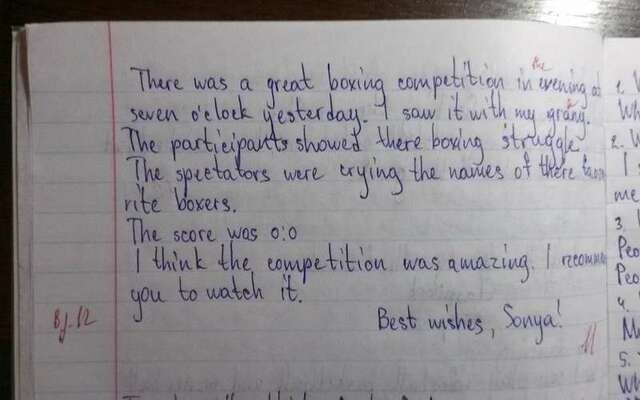 There was a great boxing competition in the evening at
seven o'clock yesterday. I saw it with my grany.
The participants showed there boxing struggle.
The spectators were crying the names of there favo
rite boxers.
The score was 0:0
I think the competition was amazing. I recomme
you to watch it.
Best wishes, Sonya!
11
1.
Wh
2.
I
me
3.
Peo
Peo
4.
Ma
5.
Wh